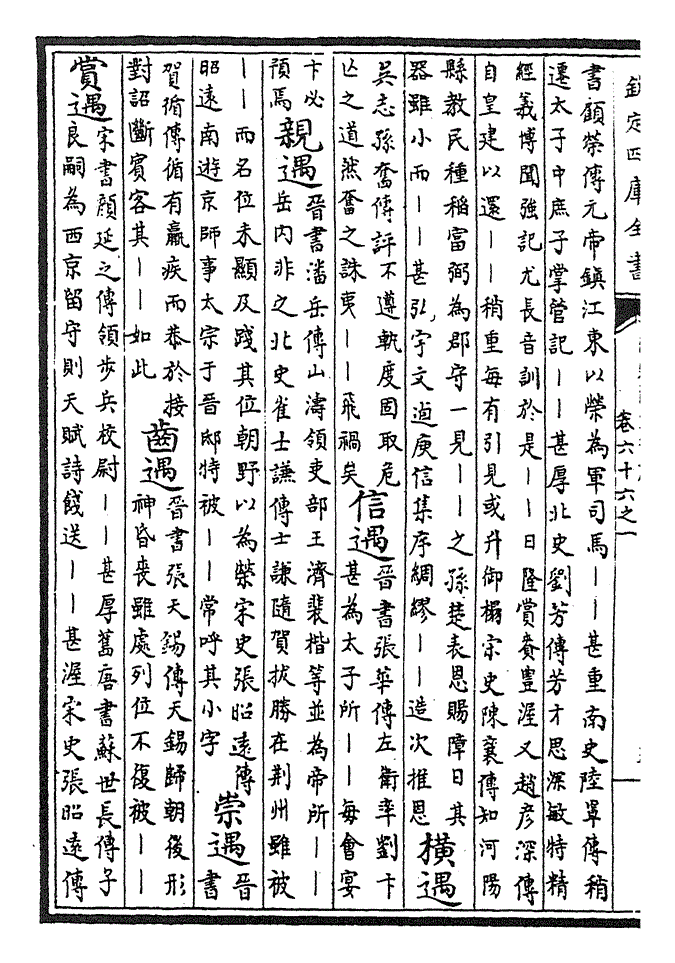 欽定四庫全書
卷六十六之一
書顧榮傳元帝鎮江東以榮為軍司馬——甚重南史陸罩傳稍
遷太子中庶子掌管記——甚厚北史劉芳傳芳才思深敏特精
經義博聞強記尤長音訓於是——日隆賞賚豊渥又趙彦深傳
自皇建以還——稍重每有引見或升御榻宗史陳襄傳知河陽
縣教民種稻富弼為郡守一見——之孫楚表恩賜障日其
器雖小而——甚弘宇文逌庾信集序綢繆——造次推恩
橫遇
吳志孫奮傳評不遵軌度固取危
亾之道然奮之誅夷——飛禍矣
信遇
晉書張華傳左衛率劉卞
甚為太子所——每會宴
卞必
預焉
親遇
晉書潘岳傳山濤領吏部王濟裴楷等並為帝所——
岳内非之北史崔士謙傳士謙隨賀拔勝在荆州雖被
——而名位未顯及踐其位朝野以為榮宋史張昭遠傳
昭遠南遊京師事太宗于晉邸特被——常呼其小字
崇遇
晉
書
賀循傳循有羸疾而恭於接
對詔斷賓客其——如此
齒遇
晉書張天錫傳天錫歸朝後形
神昏喪雖處列位不復被——
賞遇
宋書顔延之傳領步兵校尉——甚厚舊唐書蘇世長傳子
良嗣為西京留守則天賦詩餞送——甚渥宋史張昭遠傳